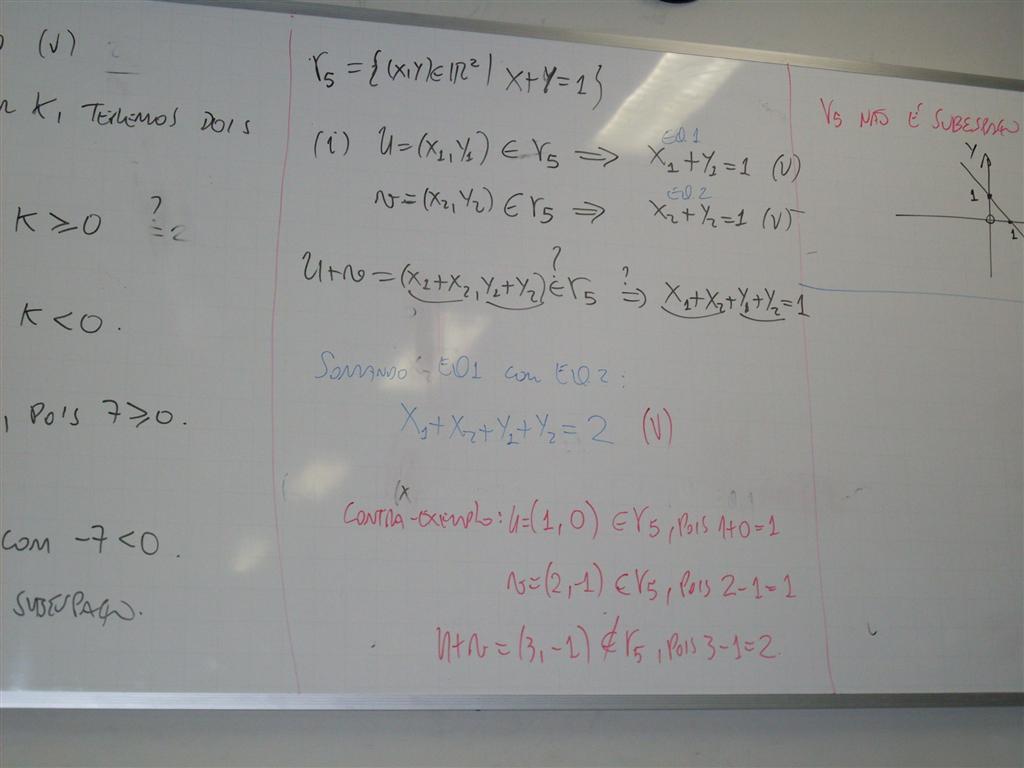 (V)
K, TEREMOS DOIS
K ≥ 0 ?
K < 0.
, POIS 7 ≥ 0.
COM -7 < 0.
SUBESPAÇO.
r₅ = {(X,Y) ∈ ℝ² | X+Y=1}
EQ.1
(i) U=(X₁,Y₁) ∈ r₅ ⇒ X₁+Y₁=1 (V)
EQ.2
v=(X₂,Y₂) ∈ r₅ ⇒ X₂+Y₂=1 (V)
? ?
U+v = (X₁+X₂, Y₁+Y₂) ∈ r₅ ⇒ X₁+X₂+Y₁+Y₂=1
SOMANDO EQ1 COM EQ2:
X₁+X₂+Y₁+Y₂= 2 (V)
(x
CONTRA-EXEMPLO: U=(1,0) ∈ r₅, POIS 1+0=1
v=(2,-1) ∈ r₅, POIS 2-1=1
U+v = (3,-1) ∉ r₅, POIS 3-1=2.
r₅ NÃO É SUBESPAÇO
Y
1
1